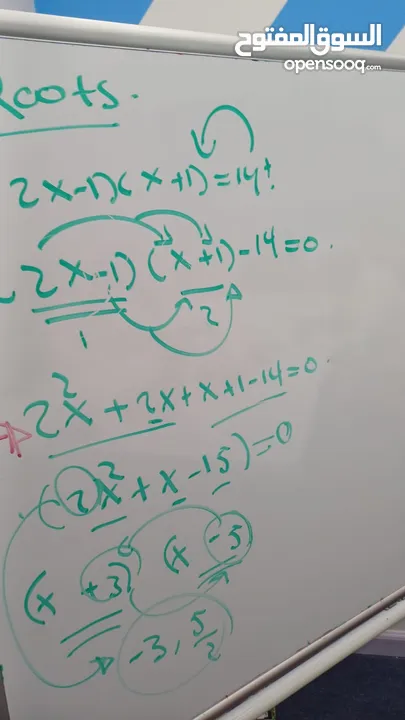 السوق المفتوح
opensooq.com
Roots.
2x-1)(x+1)=14
2x-1) (x+1)-14=0.
1 2
2x²+2x+x+1-14=0.
(2x²+x-15)=0
(x +3) (x -5)
-3, 5/2